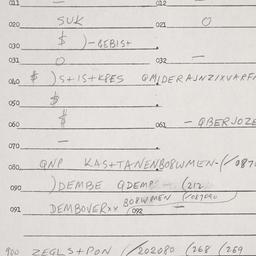 011 — 012 —
020 SUK 021 O
030 $ )-BEBIST.
031 O 032 —
040 $ )S+IS+KPES QMJDERAJNZIXVARF
050 $
060 $ 061 - QBERJOZE
070 —
080 QNP KAS+TANENBO8WMEN-(/087
090 )DEMBE QDEMP - (212
091 DEMBOVERXX BO8WMEN (/087090
092 —
900 ZEGLS+PON (/202080 (268 (269